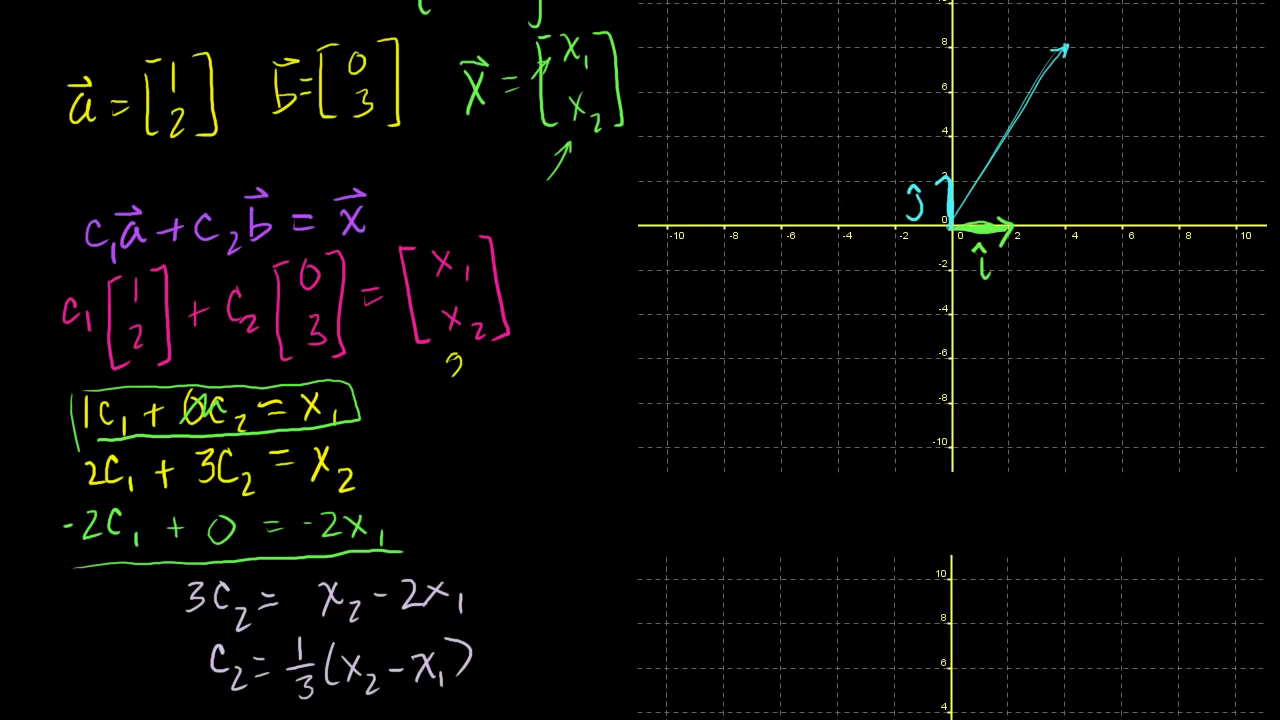 a⃗ = [1 2] b⃗ = [0 3] x⃗ = [x₁ x₂]
c₁a⃗ + c₂b⃗ = x⃗
c₁ [1 2] + c₂ [0 3] = [x₁ x₂]
1c₁ + 0c₂ = x₁
2c₁ + 3c₂ = x₂
-2c₁ + 0 = -2x₁
3c₂ = x₂ - 2x₁
c₂ = 1/3 (x₂ - x₁)
8
6
4
2
ĵ
0
-10 -8 -6 -4 -2 0 2 4 6 8 10
î
-2
-4
-6
-8
-10
10
8
6
4